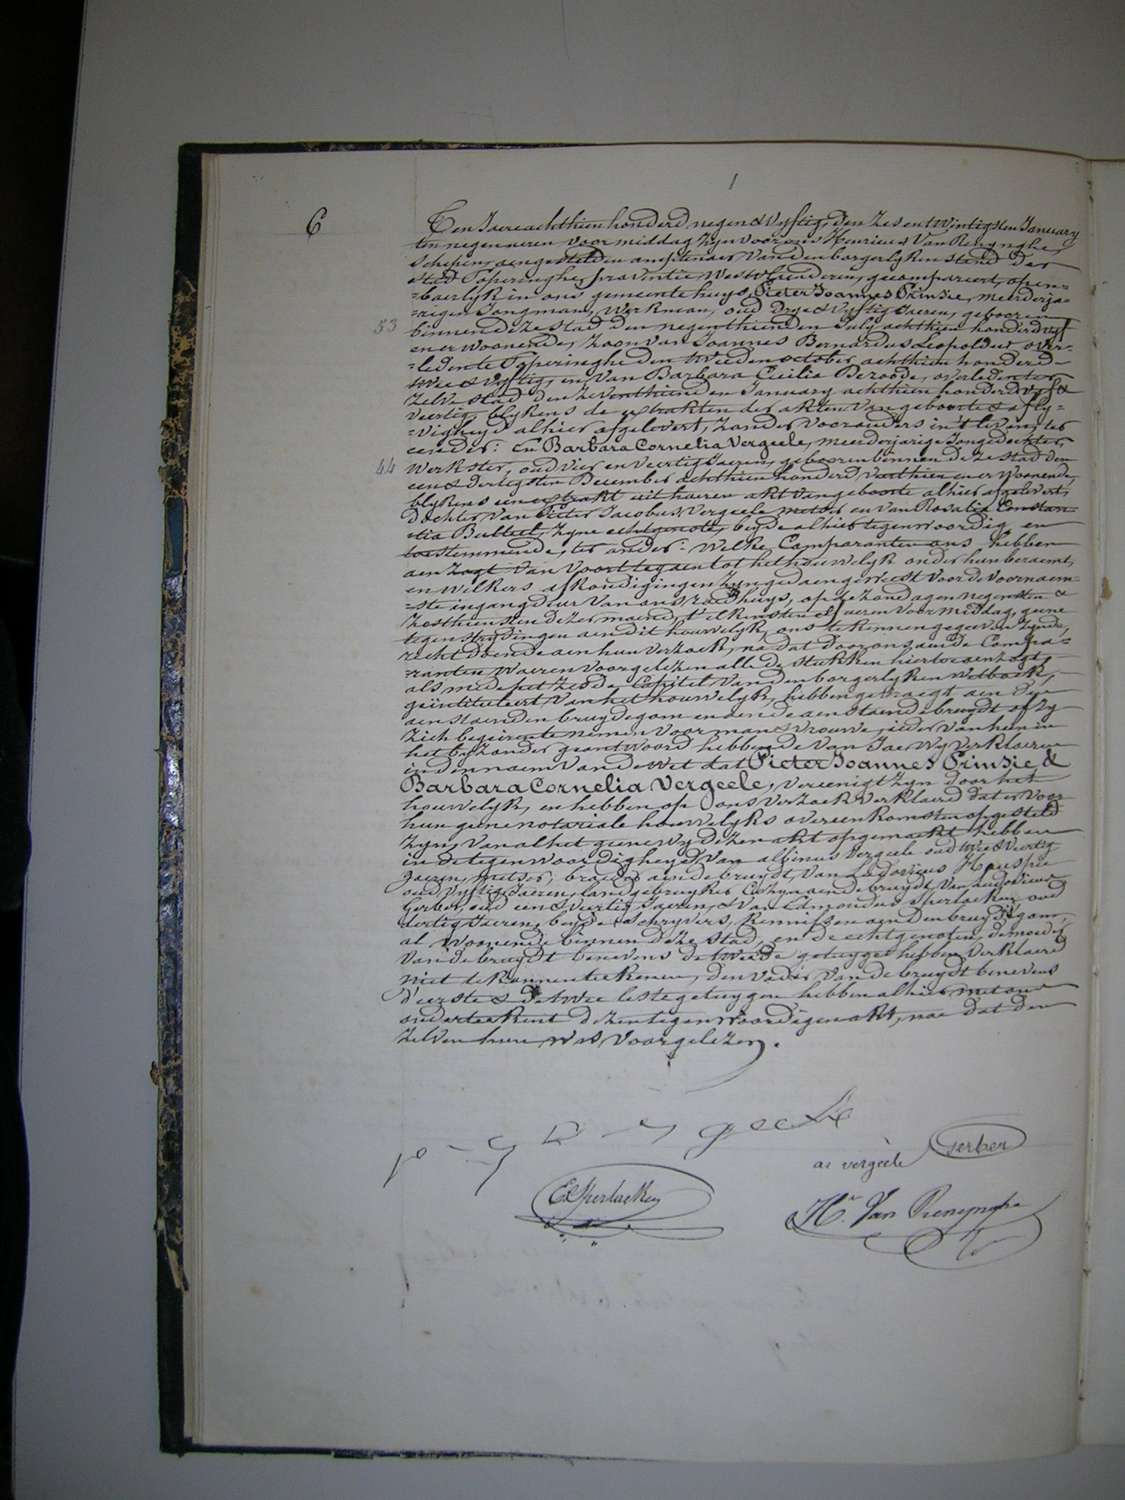 1
6
Ten Jaere achthien honderd negen & vyftig, den zes en twintigsten January
ten negen uren voormiddag zyn voor ons Henricus Van Renynghe,
schepen, aengestelden amptenaer van den borgerlyken stand der
stad Poperinghe, provintie, Westvlaenderen, gecompareert, open=
=baerlyk in ons gemeentehuys Pieter Joannes Prinsie, meerderja=
=rigen Jongman, Werkman, oud drye & vyftig Jaeren, geboren
53
binnen deze stad den negenthienden July achthien honderd vyf
en er woonende, zoon van Joannes Bernardus Leopoldus over=
=leden te Poperinghe den tweeden october achthien honderd
twee & vyftig, en van Barbara Cecilia Dezoode, overleden ter
zelve stad den zeventhienden January achthien honderd vyf &
veertig, blykens de extrakten der akten van geboorte & afly=
=vigheyd alhier afgelevert, zonder voorouders in 't leven, ter
eender: En Barbara Cornelia Vergeele, meerderjarige Jongedochter,
44
Werkster, oud vier en veertig Jaeren, geboren binnen deze stad den
een & dertigsten December achthien honderd veerthien en er woonende,
blykens een extrakt uit haeren akt van geboorte alhier afgelevert,
dochter van Pieter Jacobus Vergeele metser en van Rosalia Constan=
=tia Butteel, zyne echtgenote, beyde alhier tegenwoordig en
toestemmende, ter ander: Welke Comparanten ons hebben
aenzogt van voort te gaen tot het houwelyk onder hun beraemt,
en welkers afkondigingen zyn gedaen geweest voor de voornaem=
=ste ingangdeur van ons raedhuys, op de zondagen negensten &
zesthiensten dezer maend, t'elkenstere elf uren voormiddag, geene
tegenstrydingen aen dit houwelyk ons te kennen gegeven zynde,
recht doende aen hun verzoek, na dat door ons aen de Compa=
=ranten waeren voorgelezen alle de stukken hiertoe aenzogt,
als mede het zesde Capitel van den borgerlyken wetboek,
geintituleert, van het houwelyk, hebben gevraegt aen dye
aenstaenden bruydegom en aen de aenstaende bruydt of zy
zich begeirente nemen voor man & vrouwe, ieder van hun in
het byzonder geantwoord hebbende van Jae, wy verklaeren
in den naem van de wet dat Pieter Joannes Prinsie &
Barbara Cornelia Vergeele, vereenigt zyn door het
houwelyk, en hebben op ons verzoek verklaerd dat er voor
hun geene notariale houwelyks overeenkomsten opgesteld
zyn, van al het geene wy dezen akt opgemaekt hebben
in de tegenwoordigheyd van albinus Vergeele oud twee & veertig
Jaeren, metser, broeder aen de bruydt, van Ludovicus Heuspie
oud vyftig Jaeren, landgebruyker Cozyn aen de bruydt, van Ludovicus
Gerber oud een & veertig Jaeren, & van Edmondus Sperlaeken oud
dertig Jaeren, beyde schryvers, kennissen aen den bruydegom,
al woonende binnen deze stad, en de echtgenoten, de moeder
van de bruydt benevens de tweede getuyge hebben verklaerd
niet te konnen teekenen, den vader van de bruydt benevens
d'eerste & de twee leste getuygen hebben alhier met ons
onderteekent dezen tegenwoordigen akt, nae dat den
zelven hun was voorgelezen.
p j vergeele
ae vergeele
Gerber
E Sperlaeken
He. Van Renynghe